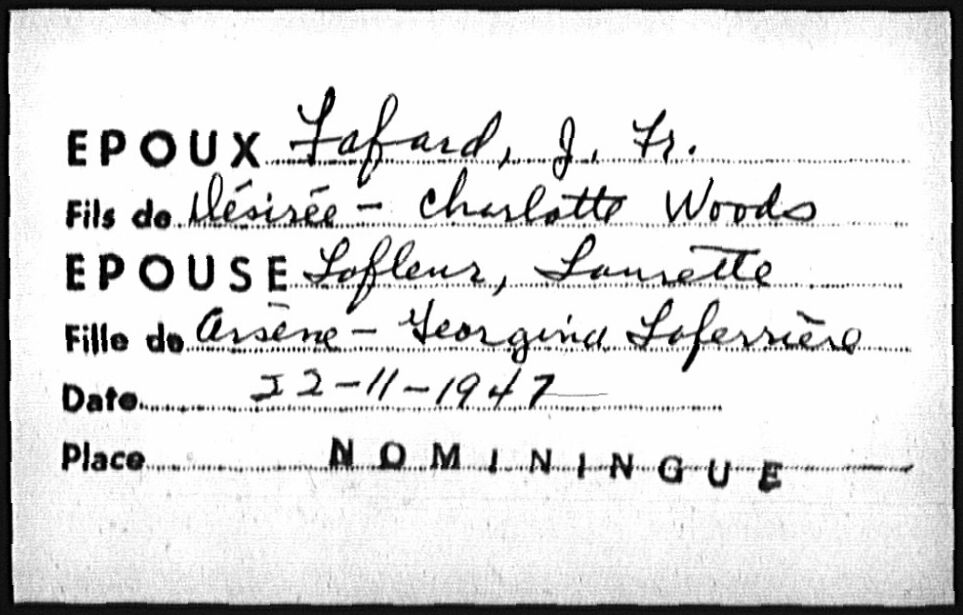 EPOUX Fafard, J. Fr.
Fils de Désirée - Charlotte Woods
EPOUSE Lafleur, Laurette
Fille de Arsène - Georgina Laferrière
Date 22-11-1947
Place NOMININGUE